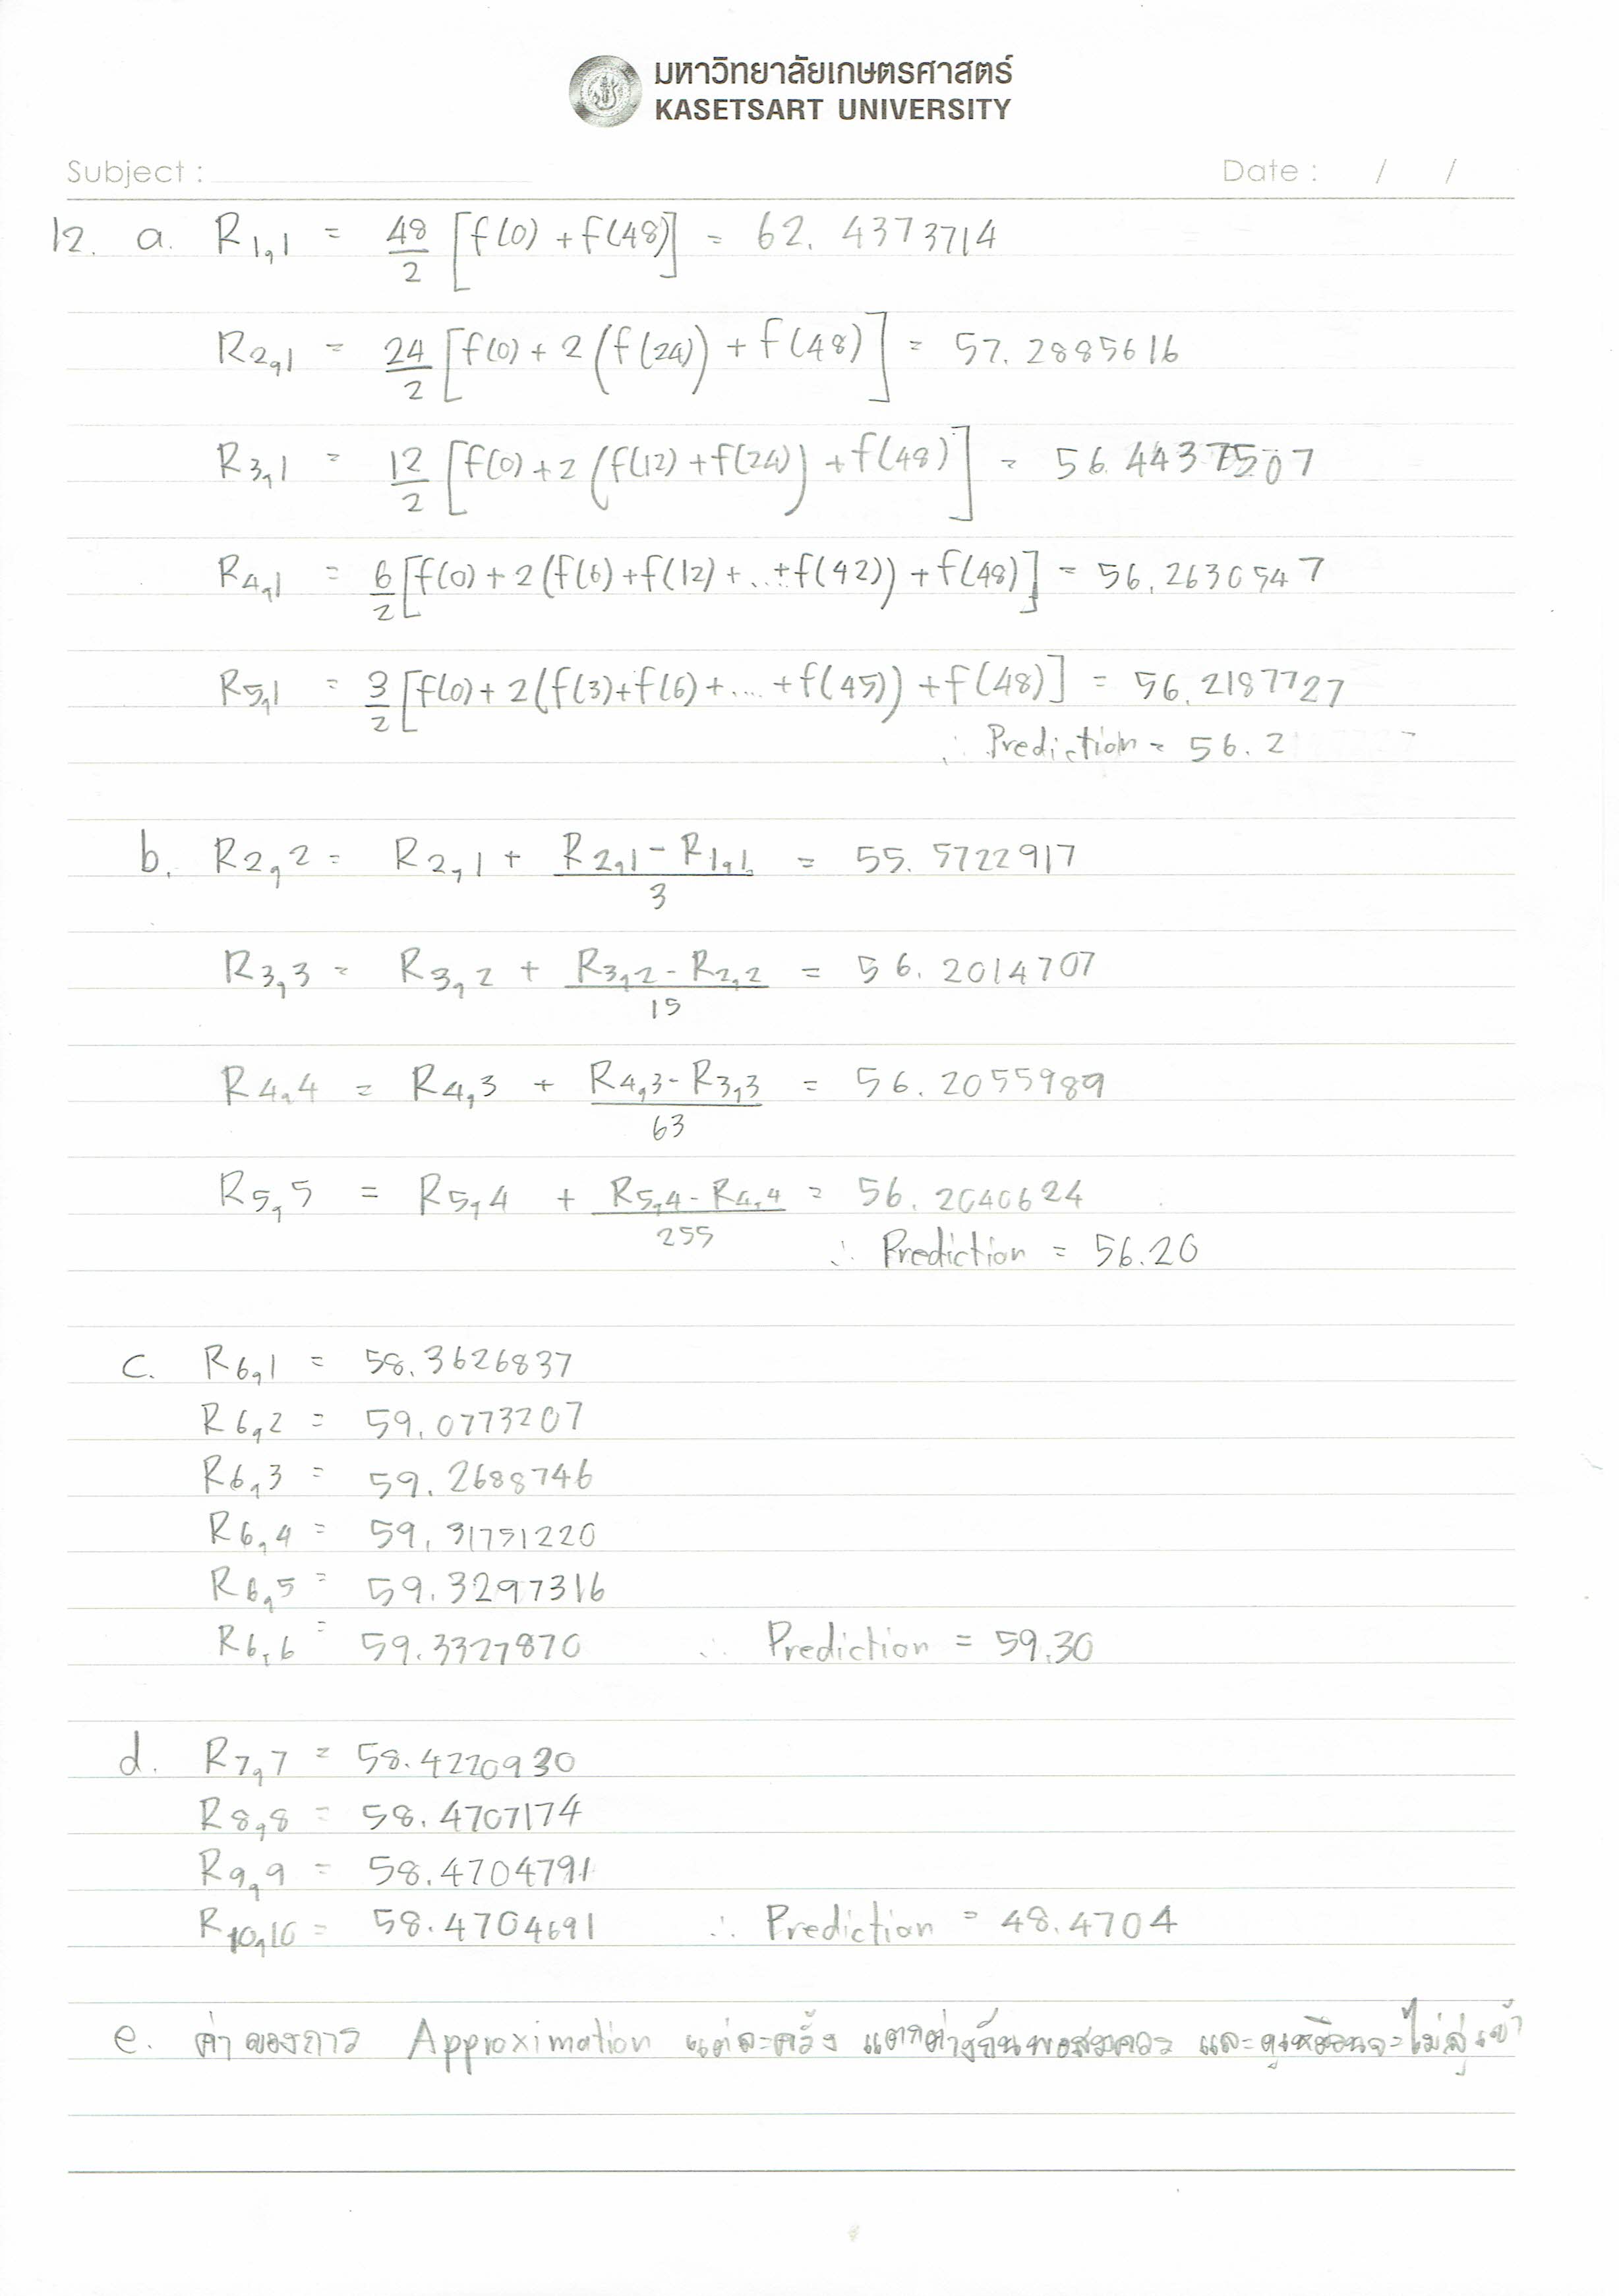 มหาวิทยาลัยเกษตรศาสตร์
KASETSART UNIVERSITY
Subject : Date : / /
12. a. R1,1 = 48/2 [f(0) + f(48)] = 62.4373714
R2,1 = 24/2 [f(0) + 2(f(24)) + f(48)] = 57.2885616
R3,1 = 12/2 [f(0) + 2(f(12) + f(24)) + f(48)] = 56.4437507
R4,1 = 6/2 [f(0) + 2(f(6) + f(12) + .. + f(42)) + f(48)] = 56.2630547
R5,1 = 3/2 [f(0) + 2(f(3) + f(6) + .... + f(45)) + f(48)] = 56.2187727
∴ Prediction = 56.2
b. R2,2 = R2,1 + (R2,1 - R1,1)/3 = 55.5722917
R3,3 = R3,2 + (R3,2 - R2,2)/15 = 56.2014707
R4,4 = R4,3 + (R4,3 - R3,3)/63 = 56.2055989
R5,5 = R5,4 + (R5,4 - R4,4)/255 = 56.2040624
∴ Prediction = 56.20
c. R6,1 = 58.3626837
R6,2 = 59.0773207
R6,3 = 59.2688746
R6,4 = 59.31751220
R6,5 = 59.3297316
R6,6 = 59.3327870 ∴ Prediction = 59.30
d. R7,7 = 58.4220930
R8,8 = 58.4707174
R9,9 = 58.4704791
R10,10 = 58.4704691 ∴ Prediction = 48.4704
e. ค่าของการ Approximation แต่ละครั้ง แตกต่างกันพอสมควร และดูเหมือนจะไม่ลู่เข้า